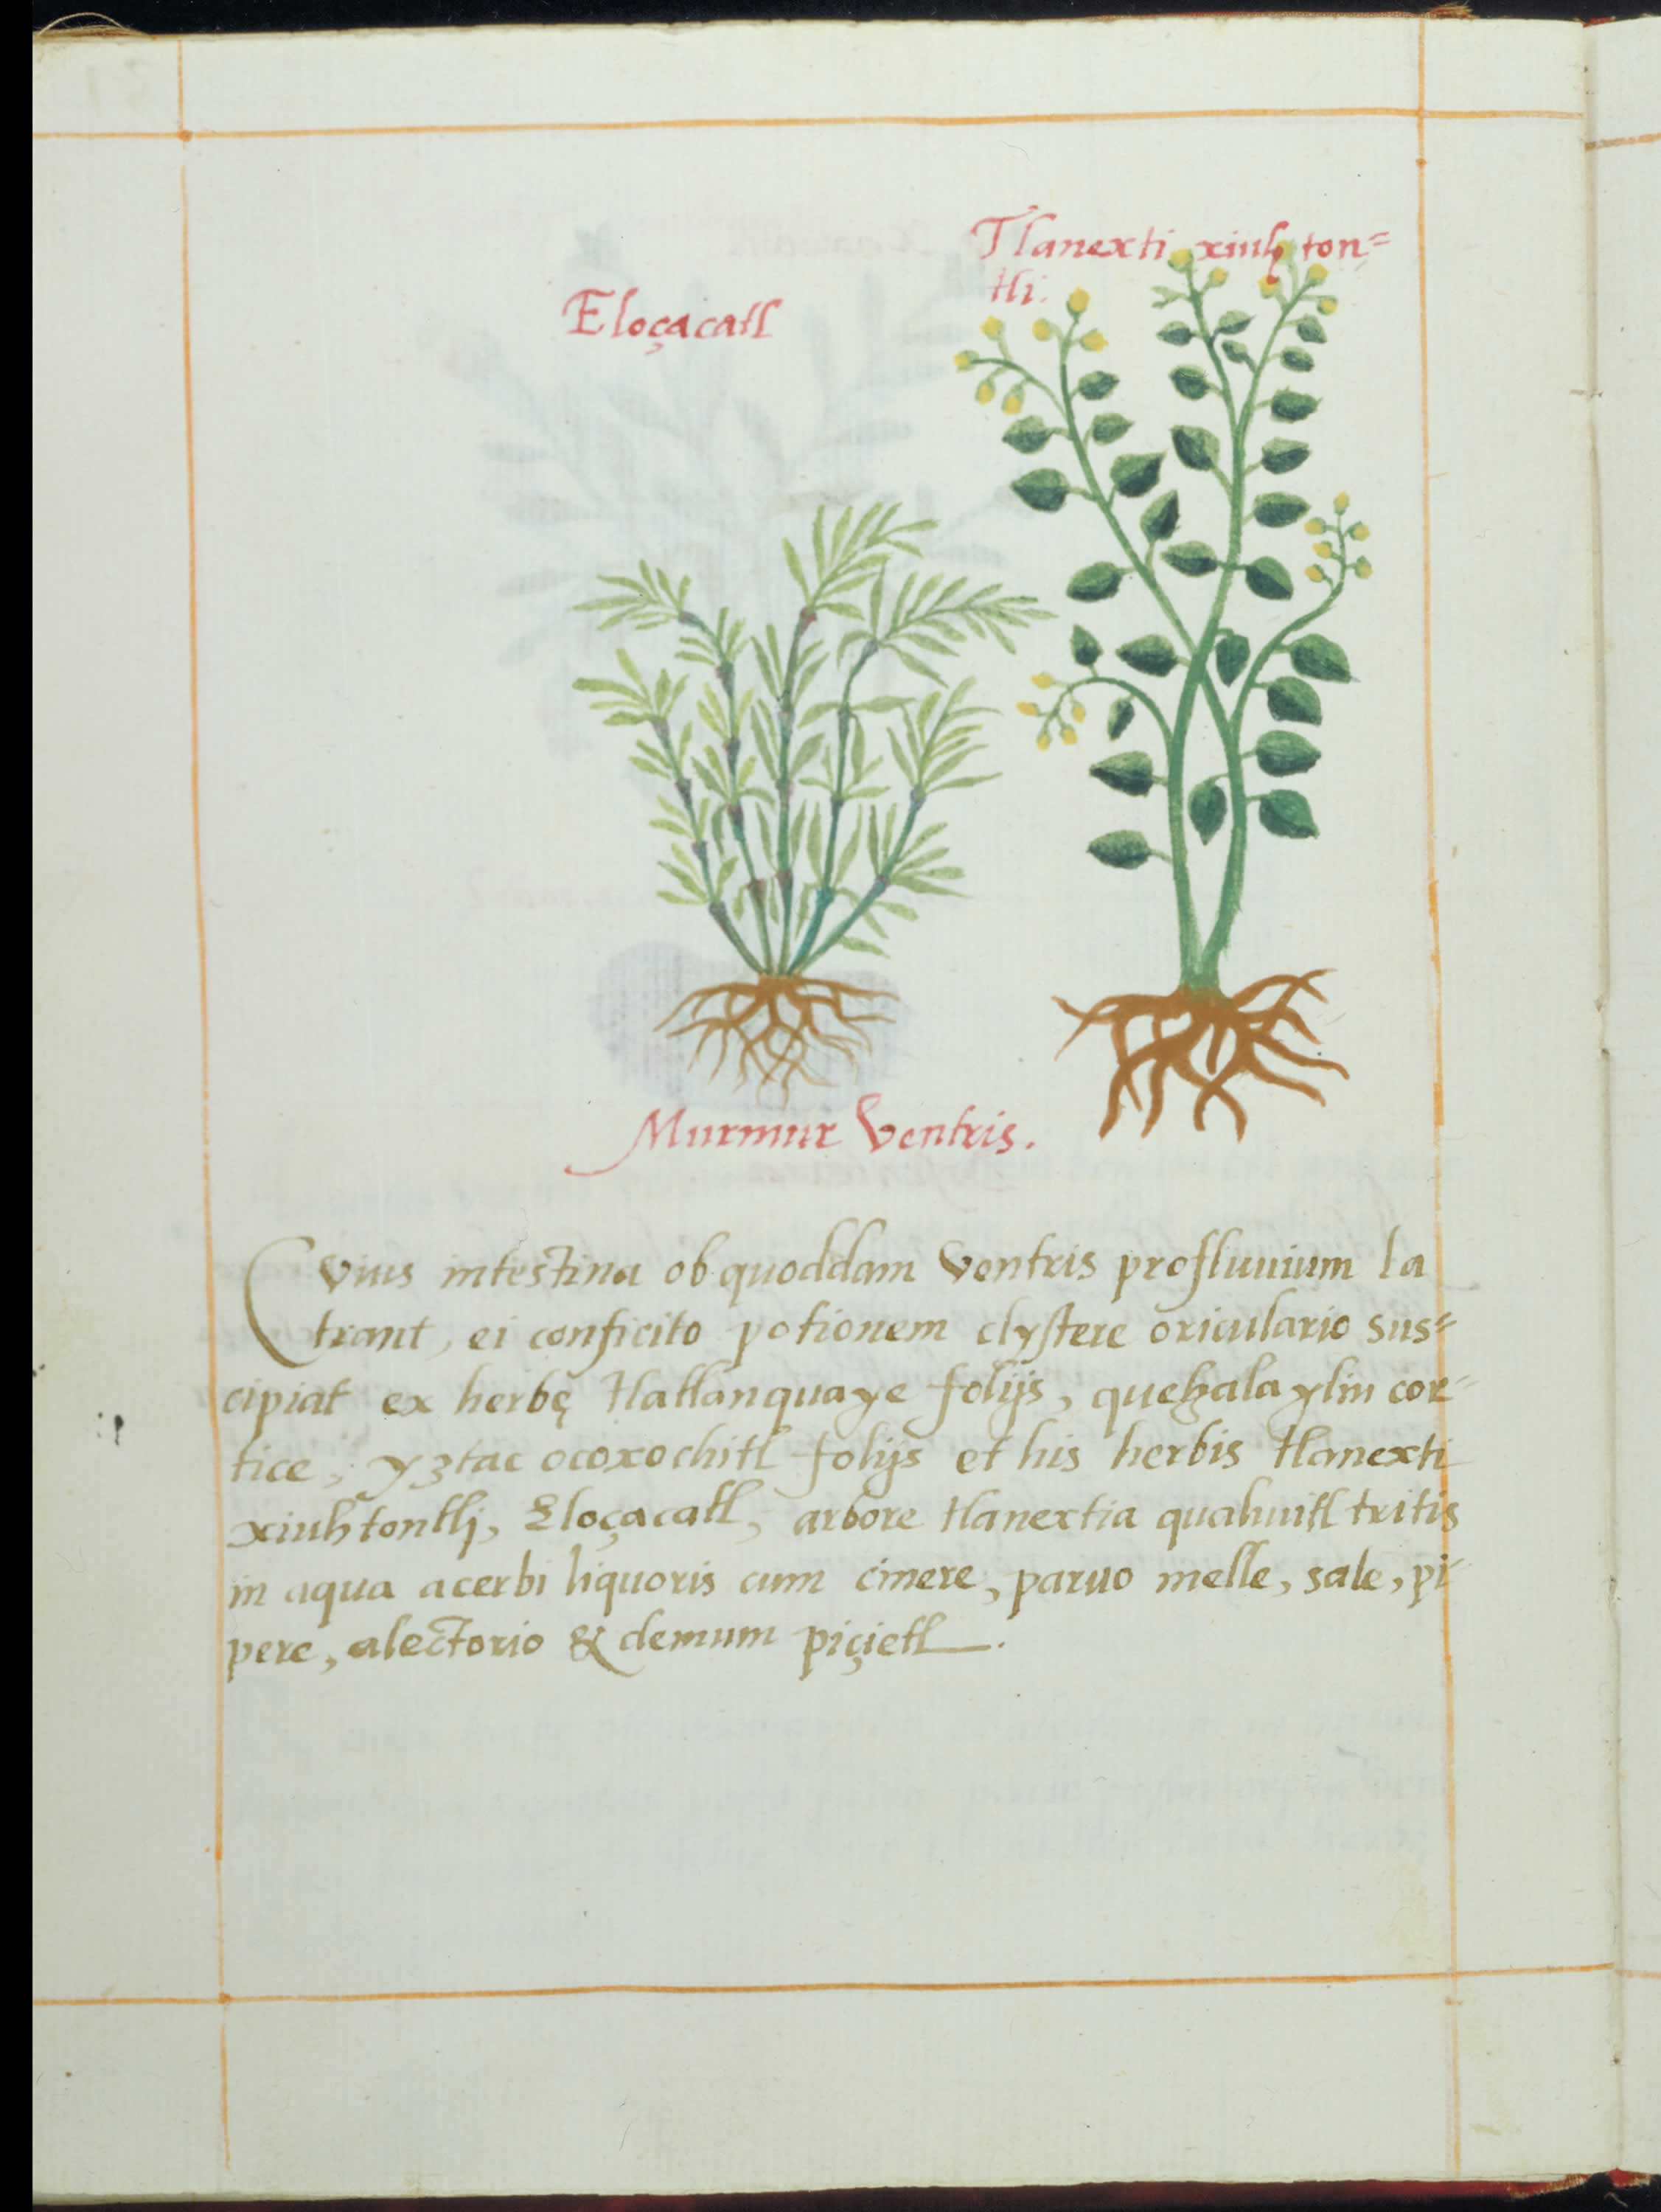 Tlanexti xiuh ton=
tli.
Eloçacatl
Murmur Ventris.
Cuius intestina ob quoddam ventris profluuium la
trant, ei conficito potionem clystere oriculario sus=
cipiat ex herbę tlatlanquaye folijs, quetzalaylin cor-
tice, yztac ocoxochitl folijs et his herbis tlanexti
xiuhtontlj, Eloçacatl, arbore tlanextia quahuitl tritis
in aqua acerbi liquoris cum cinere, paruo melle, sale, pi-
pere, alectorio & demum piçietl.